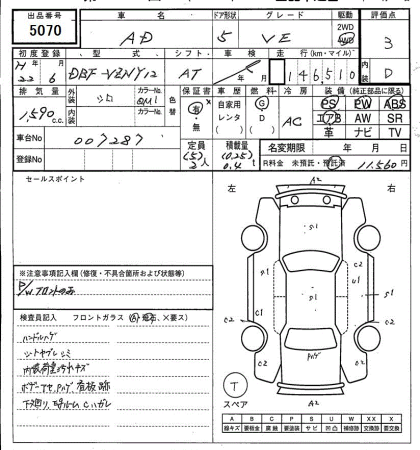 出品番号 車名 ドア形状 グレード 駆動 評価点
5070 AD 5 VE 2WD 4WD 3
初度登録 型式 シフト 車検 走行(km・マイル) 内装
H 22年 6月 DBF-VZNY12 AT 年 月 146,510 D
排気量 外装 カラーNo. 色替 保証書 車歴 燃料 冷房 装備(純正部品に限る)
1,590 c.c. シロ QM1 有・無 自家用 G AC PS PW ABS
内装 カラーNo. レンタ D エアB AW SR
革 ナビ TV
車台No 007287 定員 積載量 名変期限 年 月 日
登録No (5) 2人 (0.25) 0.4t R料金 未預託・預託済 11,560円
セールスポイント
左 右
※注意事項記入欄(修復・不具合箇所および状態等)
P/W フロントのみ
検査員記入 フロントガラス
ハンドルハゲ
シートヤブレ シミ
内張荷室汚れキズ
スペア
A B C P S U W X XX
線キズ 要板金 腐蝕 要塗装 サビ 凹凸 補修跡 交換跡 要交換